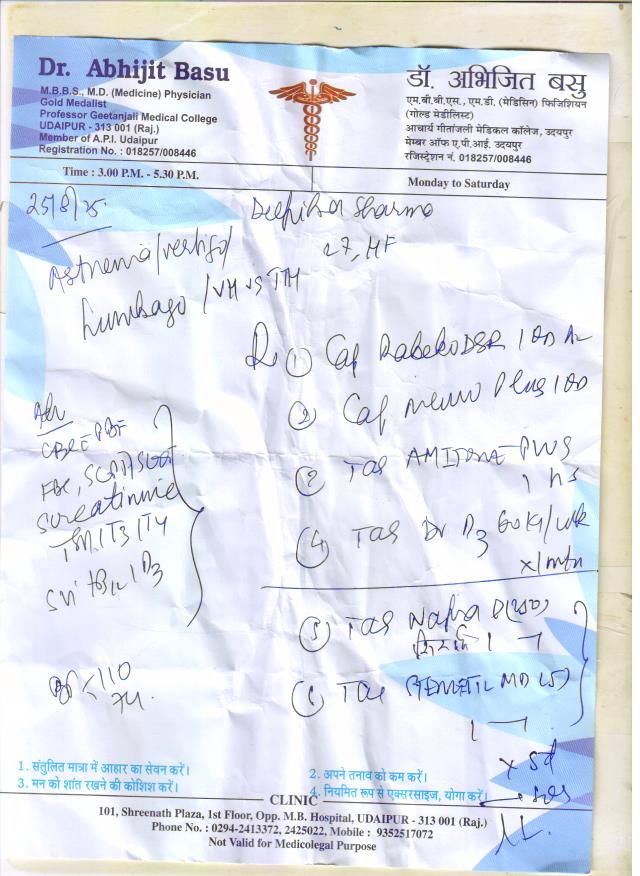 Dr. Abhijit Basu
M.B.B.S., M.D. (Medicine) Physician
Gold Medalist
Professor Geetanjali Medical College
UDAIPUR - 313 001 (Raj.)
Member of A.P.I. Udaipur
Registration No. : 018257/008446
डॉ. अभिजित बसु
एम.बी.बी.एस., एम.डी. (मेडिसिन) फिजिशियन
(गोल्ड मेडीलिस्ट)
आचार्य गीतांजली मेडिकल कॉलेज, उदयपुर
मेम्बर ऑफ ए.पी.आई. उदयपुर
रजिस्ट्रेशन नं. 018257/008446
Time : 3.00 P.M. - 5.30 P.M.
Monday to Saturday
25/8/25
Deepika Sharma
27,
Astnemia/vertigo/
Lumbago /VH vs TTH
① Cap RabekoDSR 1 OD
② Cap Plus 1 OD
Tab PLUS
1 hs
④ Tab D3 60K/wk
x1mtn
CBC PBF
FBS, SGPT/SGOT
S creatinine
TSH/T3/T4
B12/D3
⑤ Tab (250)
Tab STEMETIL MD (5)
110
74
x 5d
1. संतुलित मात्रा में आहार का सेवन करें।
2. अपने तनाव को कम करें।
3. मन को शांत रखने की कोशिश करें।
4. नियमित रूप से एक्सरसाइज, योगा करें।
CLINIC
101, Shreenath Plaza, 1st Floor, Opp. M.B. Hospital, UDAIPUR - 313 001 (Raj.)
Phone No. : 0294-2413372, 2425022, Mobile : 9352517072
Not Valid for Medicolegal Purpose